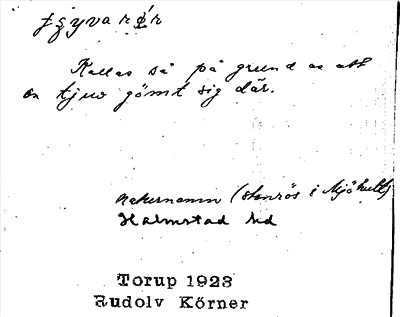 Kallas så på grund av att
en tjuv gömt sig där.
Naturnamn (stenrös i Mjöhult)
Halmstad hd
Torup 1923
Rudolv Körner